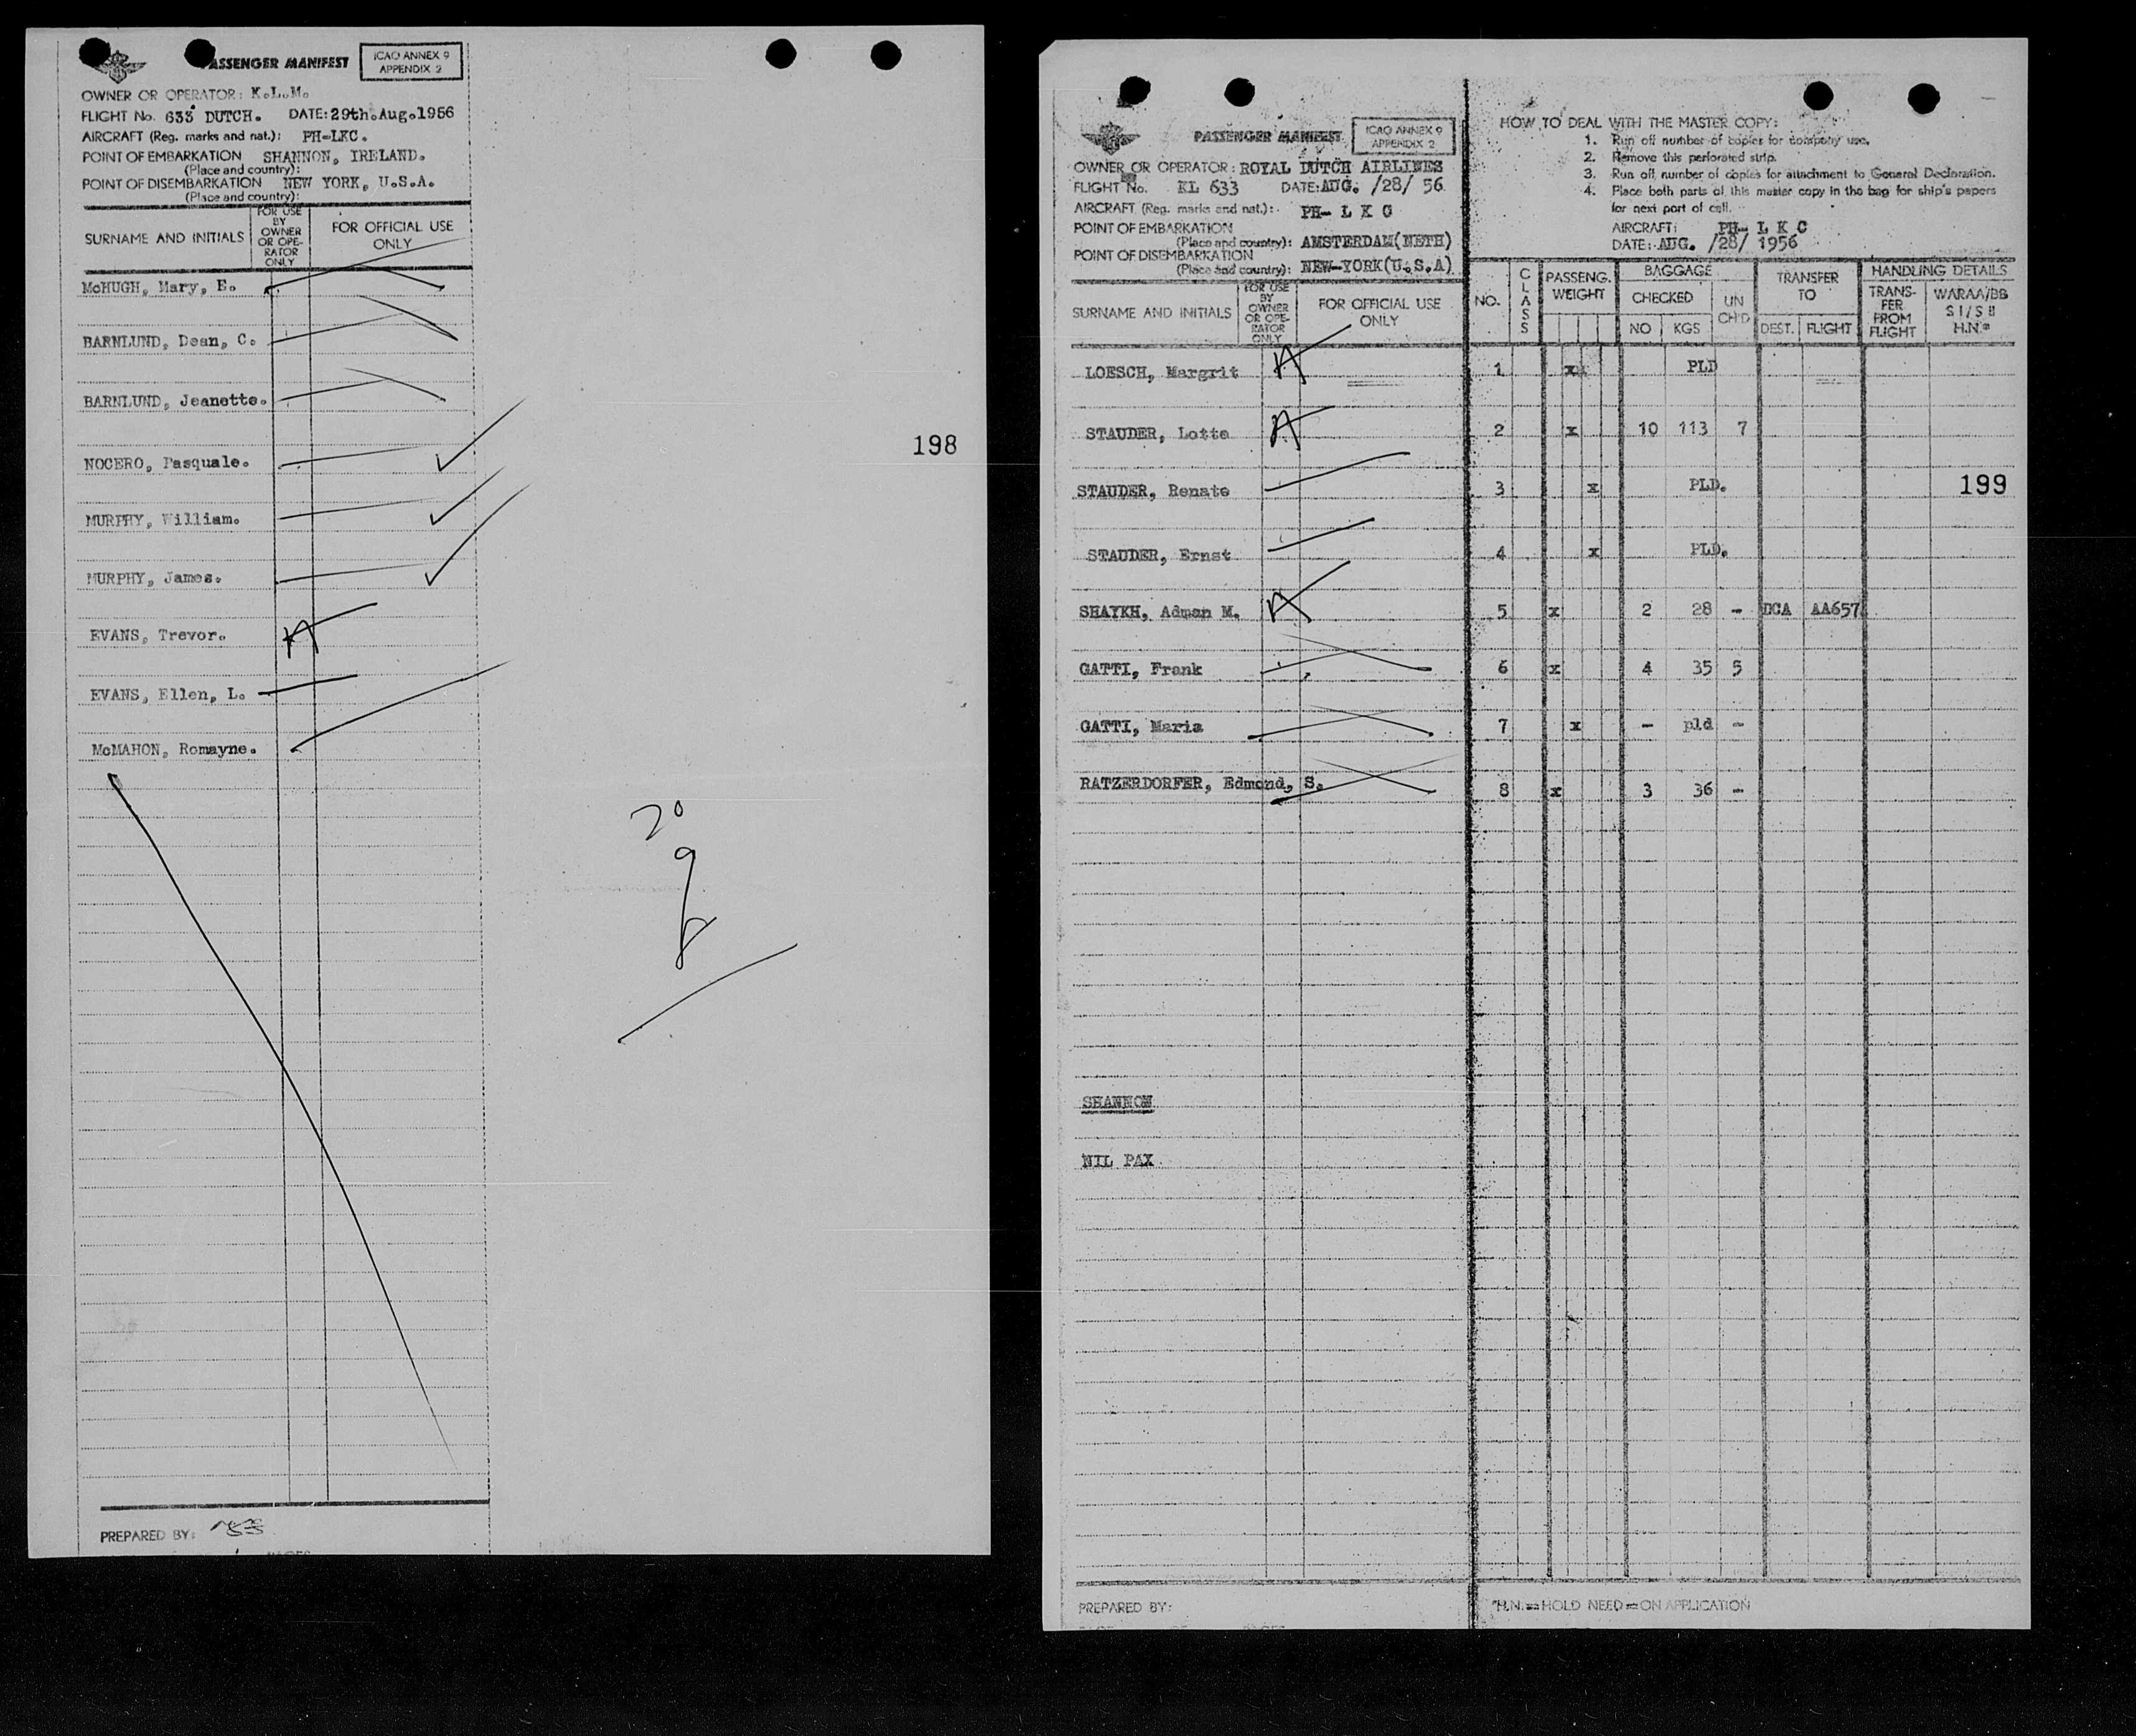 PASSENGER MANIFEST
ICAO ANNEX 9
APPENDIX 2
OWNER OR OPERATOR: K.L.M.
FLIGHT No. 633 DUTCH. DATE: 29th.Aug.1956
AIRCRAFT (Reg. marks and nat.): PH-LKC.
POINT OF EMBARKATION SHANNON, IRELAND.
(Place and country):
POINT OF DISEMBARKATION NEW YORK, U.S.A.
(Place and country):
SURNAME AND INITIALS
FOR USE BY OWNER OR OPE-RATOR ONLY
FOR OFFICIAL USE ONLY
McHUGH, Mary, E.
BARNLUND, Dean, C.
BARNLUND, Jeanette.
NOCERO, Pasquale.
MURPHY, William.
MURPHY, James.
EVANS, Trevor.
EVANS, Ellen, L.
McMAHON, Romayne.
198
PREPARED BY:
PASSENGER MANIFEST
ICAO ANNEX 9
APPENDIX 2
OWNER OR OPERATOR: ROYAL DUTCH AIRLINES
FLIGHT No. KL 633 DATE: AUG. /28/ 56
AIRCRAFT (Reg. marks and nat.): PH- L K C
POINT OF EMBARKATION
(Place and country): AMSTERDAM(NETH)
POINT OF DISEMBARKATION
(Place and country): NEW-YORK(U.S.A)
HOW TO DEAL WITH THE MASTER COPY:
1. Run off number of copies for company use.
2. Remove this perforated strip.
3. Run off number of copies for attachment to General Declaration.
4. Place both parts of this master copy in the bag for ship's papers
for next port of call.
AIRCRAFT: PH- L K C
DATE: AUG. /28/ 1956
SURNAME AND INITIALS
FOR USE BY OWNER OR OPE-RATOR ONLY
FOR OFFICIAL USE ONLY
NO. CLASS PASSENG. WEIGHT BAGGAGE CHECKED NO KGS UN CH'D TRANSFER TO DEST. FLIGHT HANDLING DETAILS TRANS-FER FROM FLIGHT WARAA/BB S I/S II H.N.*
LOESCH, Margrit 1 x PLD
STAUDER, Lotte 2 x 10 113 7
STAUDER, Renate 3 x PLD.
199
STAUDER, Ernst 4 x PLD.
SHAYKH, Adman M. 5 x 2 28 - DCA AA657
GATTI, Frank 6 x 4 35 5
GATTI, Maria 7 x - pld -
RATZERDORFER, Edmond, S. 8 x 3 36 -
SHANNON
NIL PAX
PREPARED BY:
*H.N. = HOLD NEED = ON APPLICATION